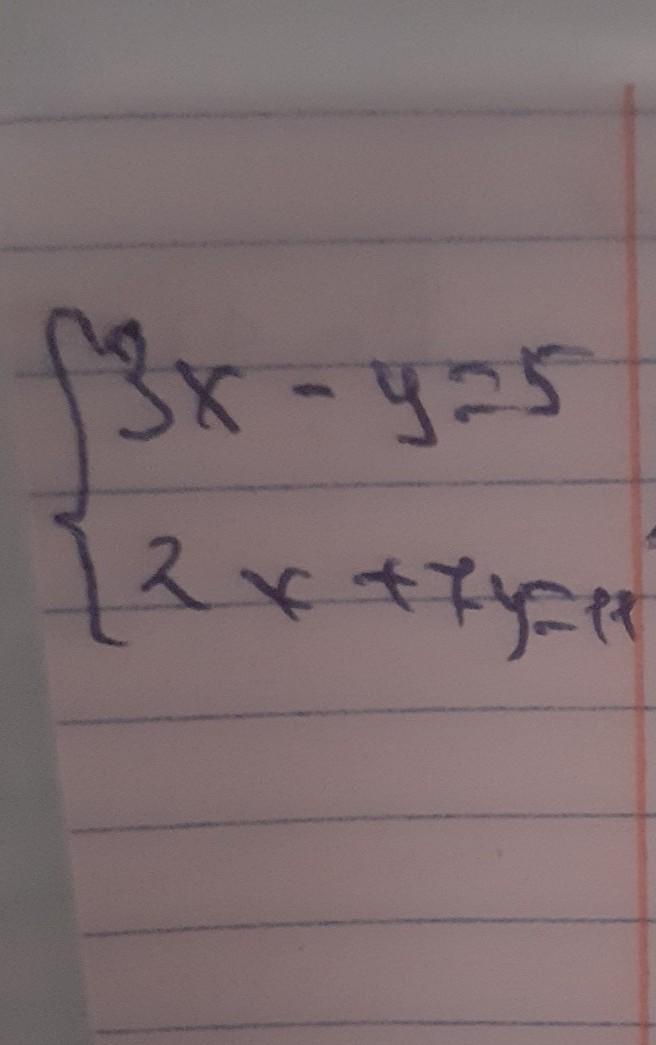 3x - y = 5
2x + 7y = 11